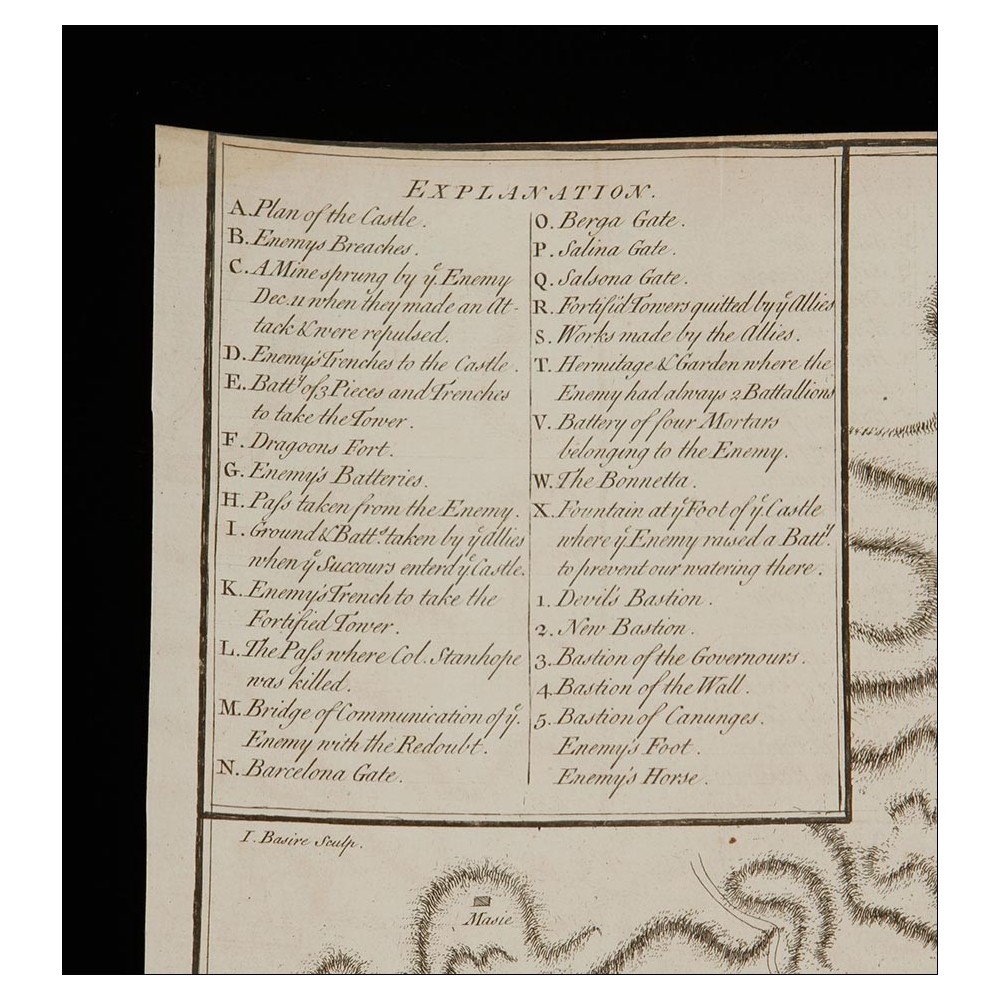 EXPLANATION.
A. Plan of the Castle.
B. Enemys Breaches.
C. A Mine sprung by yͤ. Enemy
Dec. 11 when they made an At-
tack & were repulsed.
D. Enemy's Trenches to the Castle.
E. Battʸ of 3 Pieces and Trenches
to take the Tower.
F. Dragoons Fort.
G. Enemy's Batteries.
H. Paſs taken from the Enemy.
I. Ground & Battˢ. taken by yͤ Allies
when yͤ Succours enterd yͤ Castle.
K. Enemy's Trench to take the
Fortified Tower.
L. The Paſs where Col. Stanhope
was killed.
M. Bridge of Communication of yͤ.
Enemy with the Redoubt.
N. Barcelona Gate.
O. Berga Gate.
P. Salina Gate.
Q. Salsona Gate.
R. Fortifi'd Towers quitted by yͤ Allies
S. Works made by the Allies.
T. Hermitage & Garden where the
Enemy had always 2 Battallions
V. Battery of four Mortars
belonging to the Enemy.
W. The Bonnetta.
X. Fountain at yͤ Foot of yͤ Castle
where yͤ Enemy raised a Battʸ.
to prevent our watering there.
1. Devil's Bastion.
2. New Bastion.
3. Bastion of the Governours.
4. Bastion of the Wall.
5. Bastion of Canunges.
Enemy's Foot.
Enemy's Horse.
I. Basire Sculp.
Masie